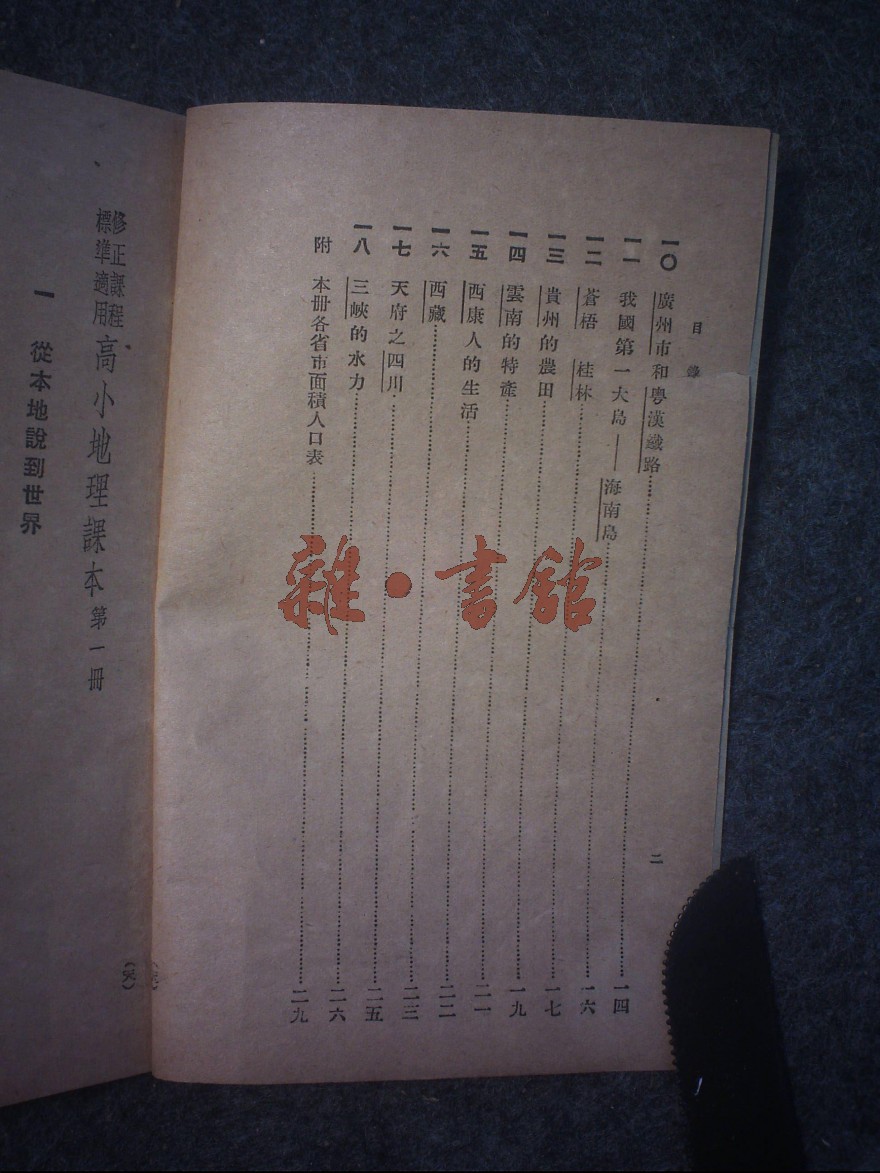 目錄
一〇 廣州市和粵漢鐵路……一四
一一 我國第一大島——海南島……一六
一二 蒼梧 桂林……一七
一三 貴州的農田……一九
一四 雲南的特產……二一
一五 西康人的生活……二二
一六 西藏……二三
一七 天府之四川……二五
一八 三峽的水力……二六
附 本冊各省市面積人口表……二九
二
修正課程標準適用 高小地理課本 第一冊
一 從本地說到世界
雜·書館